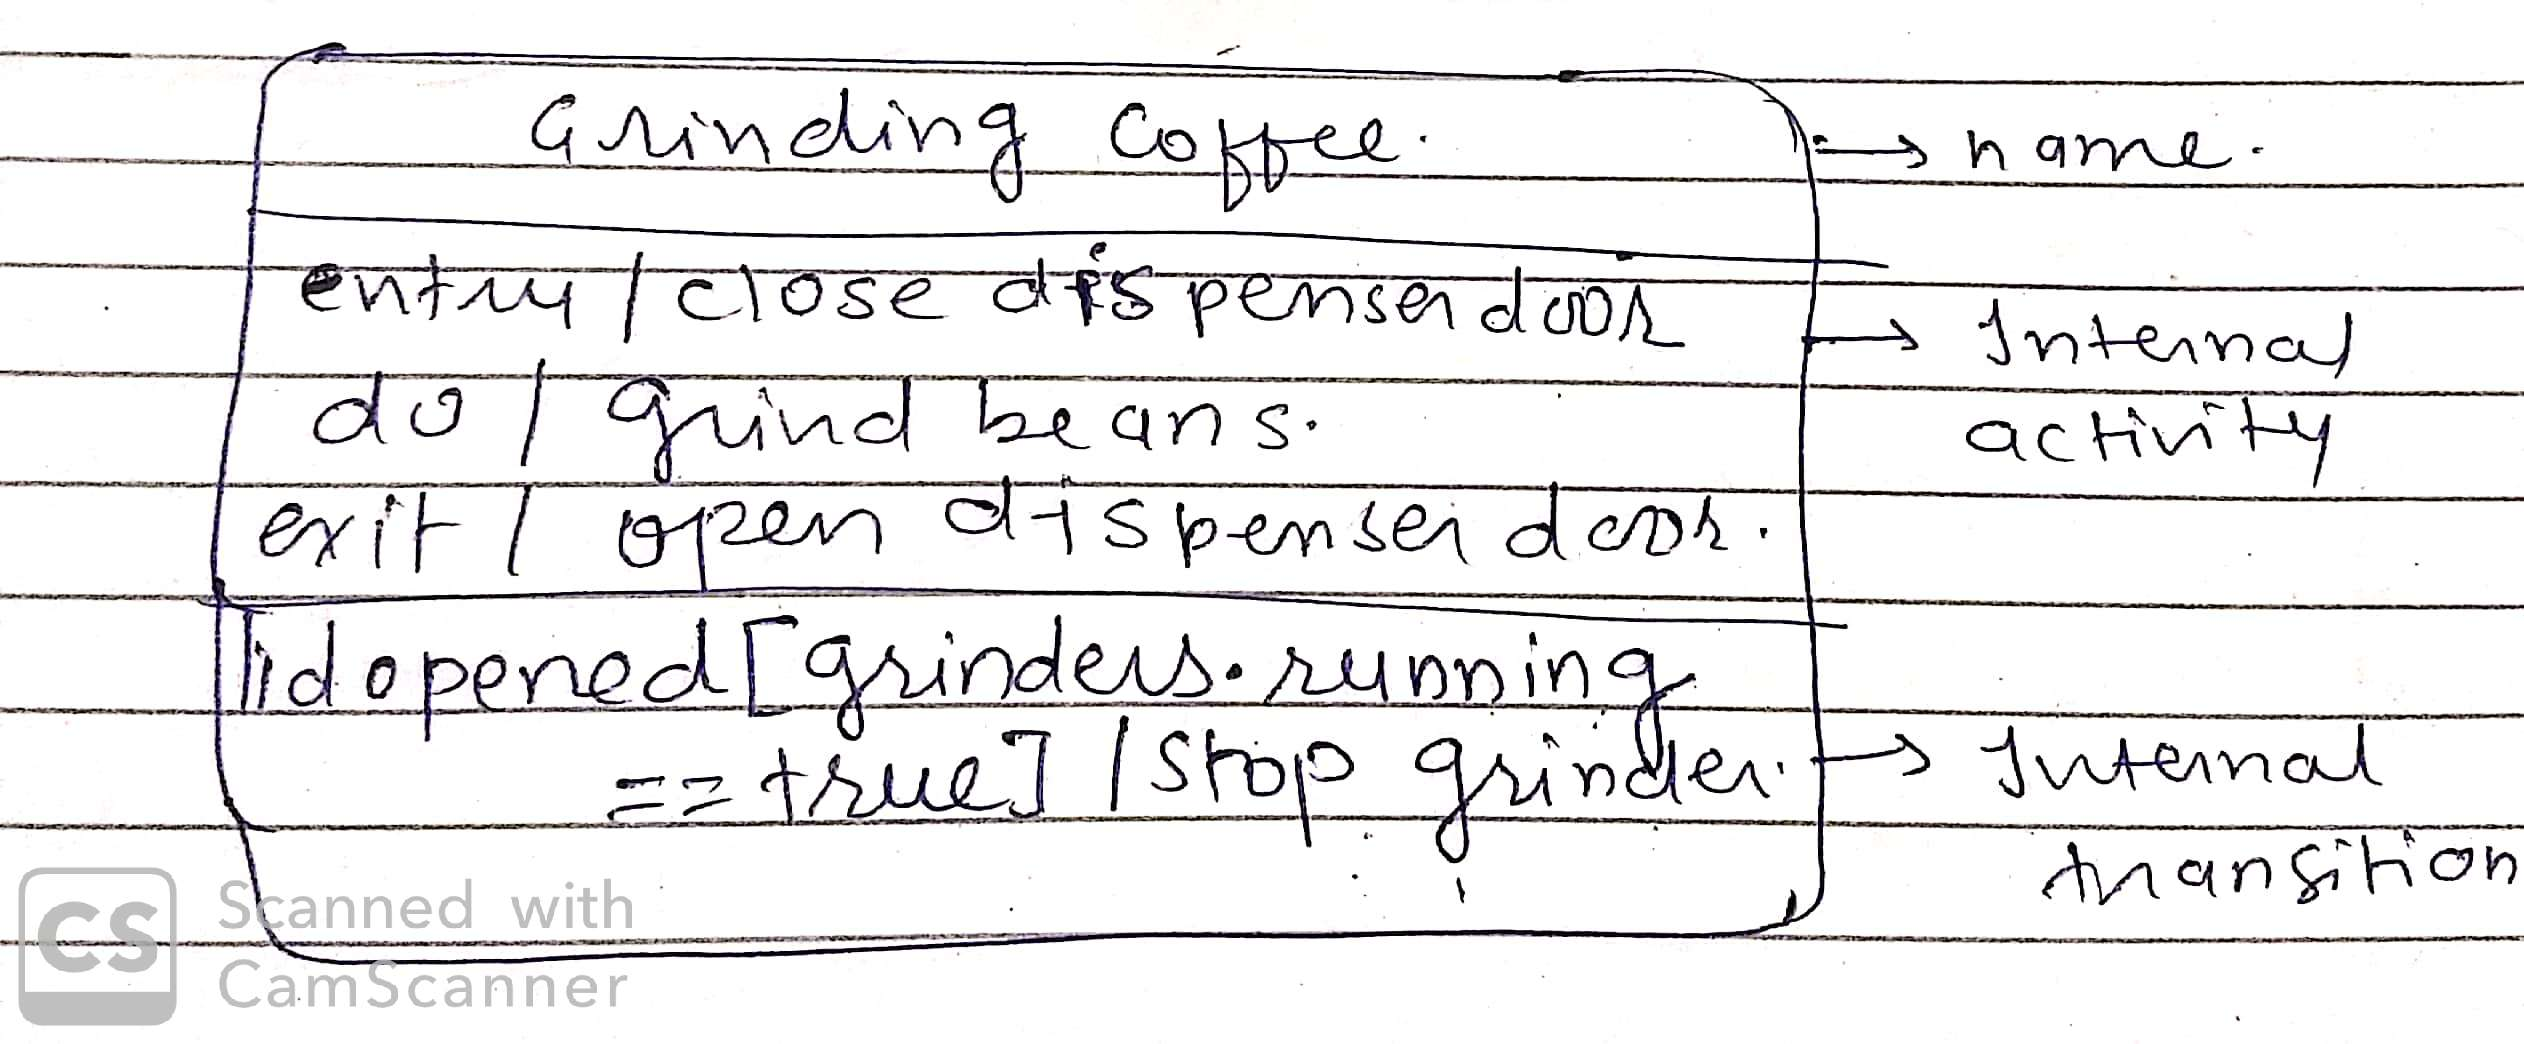 Grinding Coffee. → name.
entry / close dispenser door → Internal
do / grind beans. activity
exit / open dispenser door.
lid opened [grinders.running
== true] / stop grinder. → Internal
transition
CS Scanned with
CamScanner